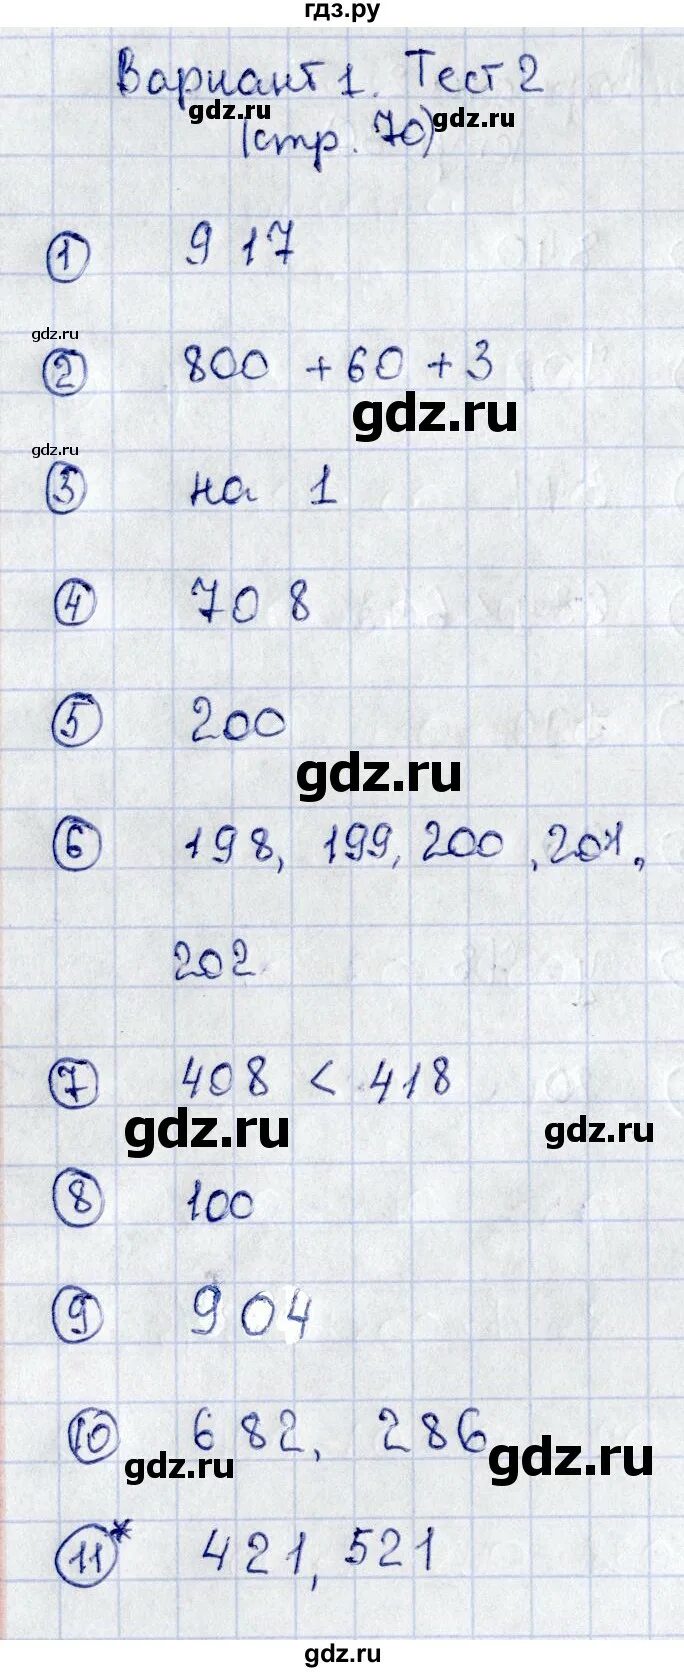 гдз.ру
Вариант 1. Тест 2
gdz.ru
(стр. 70)
gdz.ru
1 917
gdz.ru
2 800 + 60 + 3
gdz.ru
gdz.ru
3 на 1
4 708
5 200
gdz.ru
6 198, 199, 200, 201,
202
7 408 < 418
gdz.ru
gdz.ru
8 100
9 904
10 682, 286
gdz.ru
gdz.ru
11* 421, 521
gdz.ru